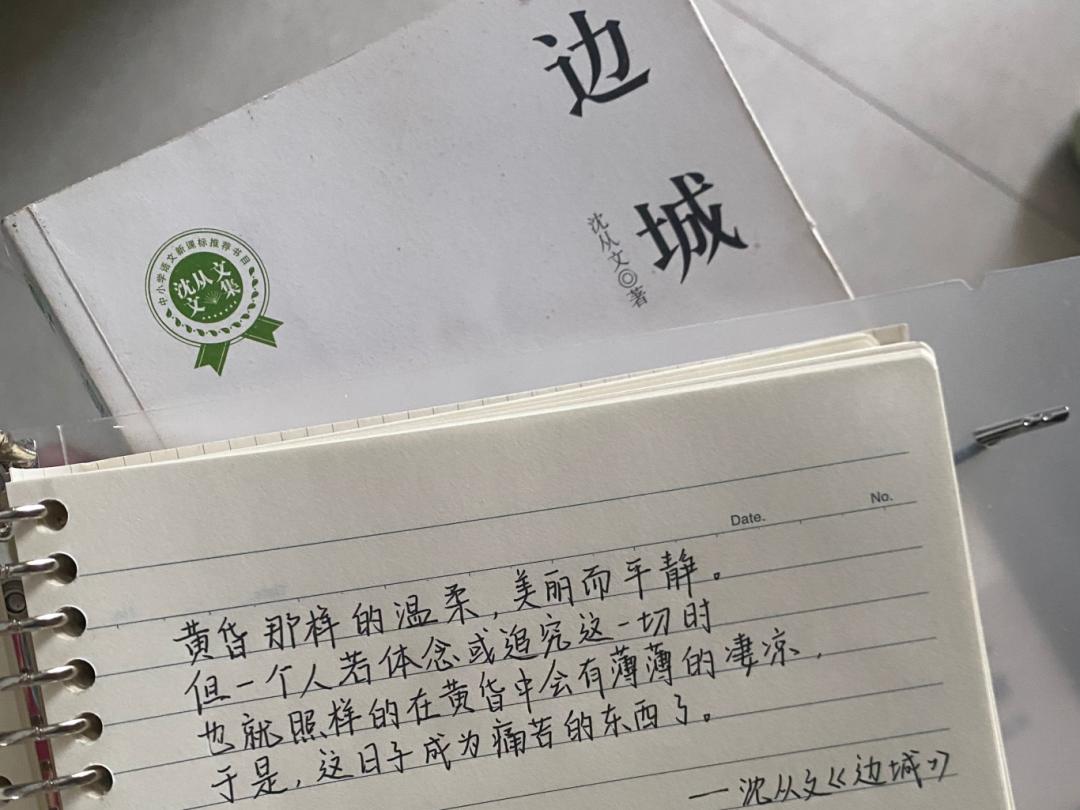 边城
沈从文◎著
中小学语文新课标推荐书目
沈从文
文集
Date.
No.
黄昏那样的温柔，美丽而平静。
但一个人若体念或追究这一切时
也就照样的在黄昏中会有薄薄的凄凉，
于是，这日子成为痛苦的东西了。
—沈从文《边城》